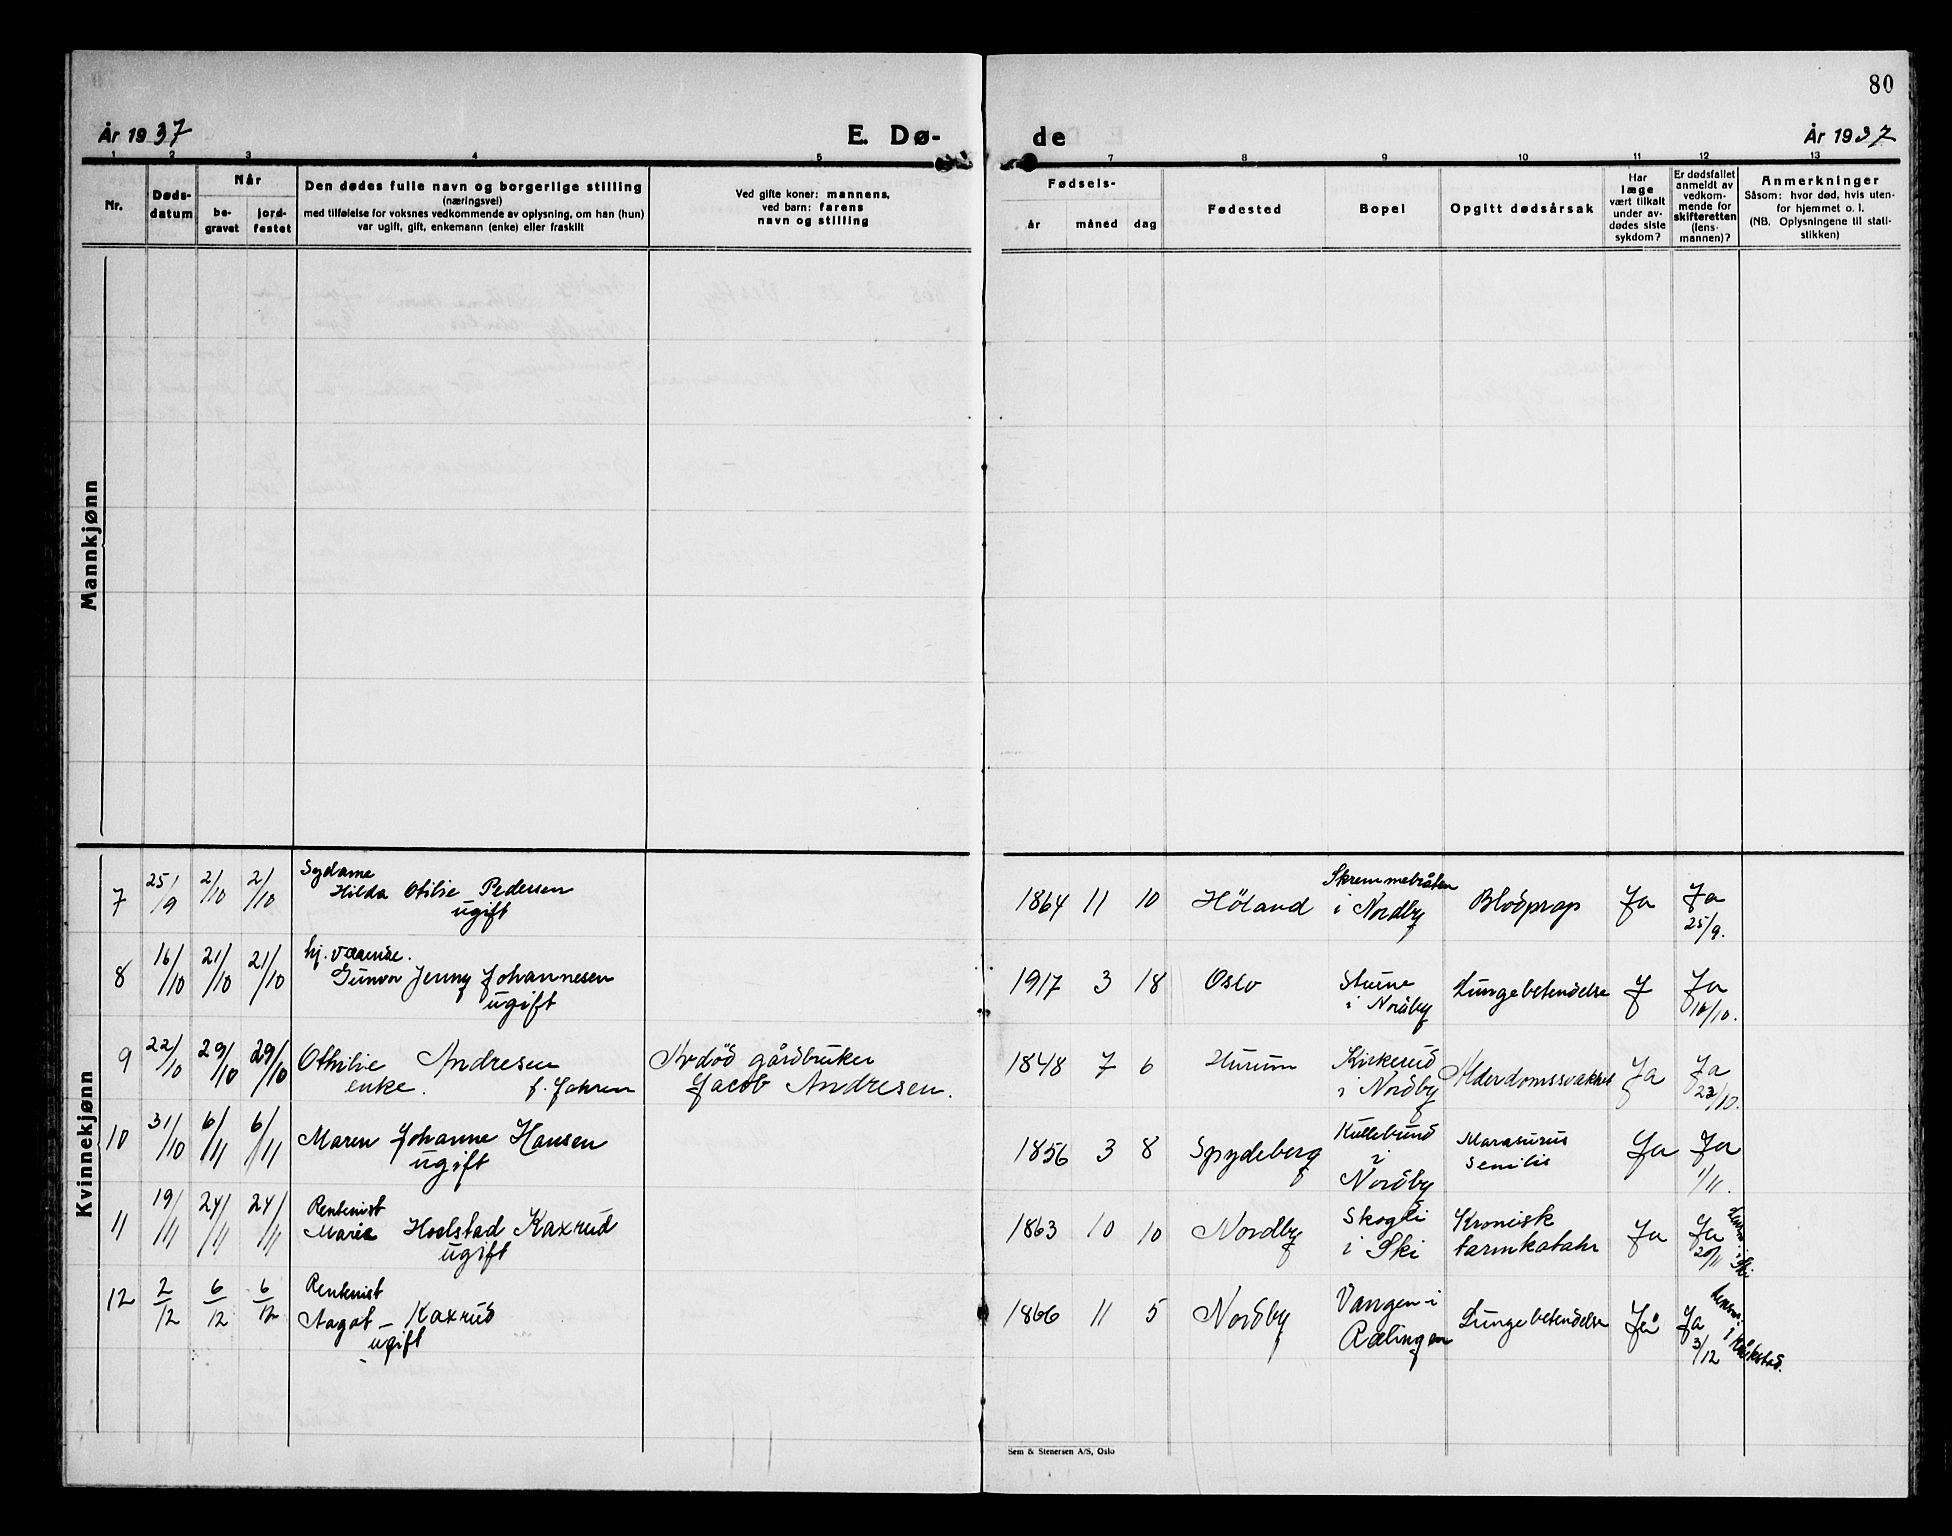 80
År 1937
E. Dø-
de
År 1937
1 2 3 4 5 7 8 9 10 11 12 13
Nr.
Døds-
datum
Når
be-
gravet
jord-
festet
Den dødes fulle navn og borgerlige stilling
(næringsvei)
med tilføielse for voksnes vedkommende av oplysning, om han (hun)
var ugift, gift, enkemann (enke) eller fraskilt
Ved gifte koner: mannens,
ved barn: farens
navn og stilling
Fødsels-
år
måned
dag
Fødested
Bopel
Opgitt dødsårsak
Har
læge
vært tilkalt
under av-
dødes siste
sykdom?
Er dødsfallet
anmeldt av
vedkom-
mende for
skifteretten
(lens-
mannen)?
Anmerkninger
Såsom: hvor død, hvis uten-
for hjemmet o. l.
(NB. Oplysningene til stati-
stikken)
Mannkjønn
Kvinnekjønn
7 25/9 2/10 2/10
Sydame
Hilda Otilie Pedersen
ugift
1864 11 10 Höland
Skremmebråten
i Nordby
Blodprop Ja Ja
25/9.
8 16/10 21/10 21/10
hj. værende.
Gunvor Jenny Johannesen
ugift
1917 3 18 Oslo
Stuene
i Nordby
Lungebetendelse J Ja
16/10.
9 22/10 29/10 29/10
Othilie Andresen
enke. f. Johren
Avdöd gårdbruker
Jacob Andresen.
1848 7 6 Hurum
Kirkerud
i Nordby
Alderdomssvakhet Ja Ja
23/10.
10 31/10 6/11 6/11
Maren Johanne Hansen
ugift
1856 3 8 Spydeberg
Kullebund
i
Nordby
Marasmus
Senilis
Ja Ja
1/11.
11 19/11 24/11 24/11
Rentenist
Maria Hoelstad Kaxrud
ugift
1863 10 10 Nordby
Skogli
i Ski
Kronisk
tarmkatahr
Ja Ja
20/11
i Ski
12 2/12 6/12 6/12
Rentenist
Aagot – Kaxrud
ugift
1866 11 5 Nordby
Vangen i
Rælingen
Lungebetendelse Ja Ja
3/12
Sem & Stenersen A/S, Oslo